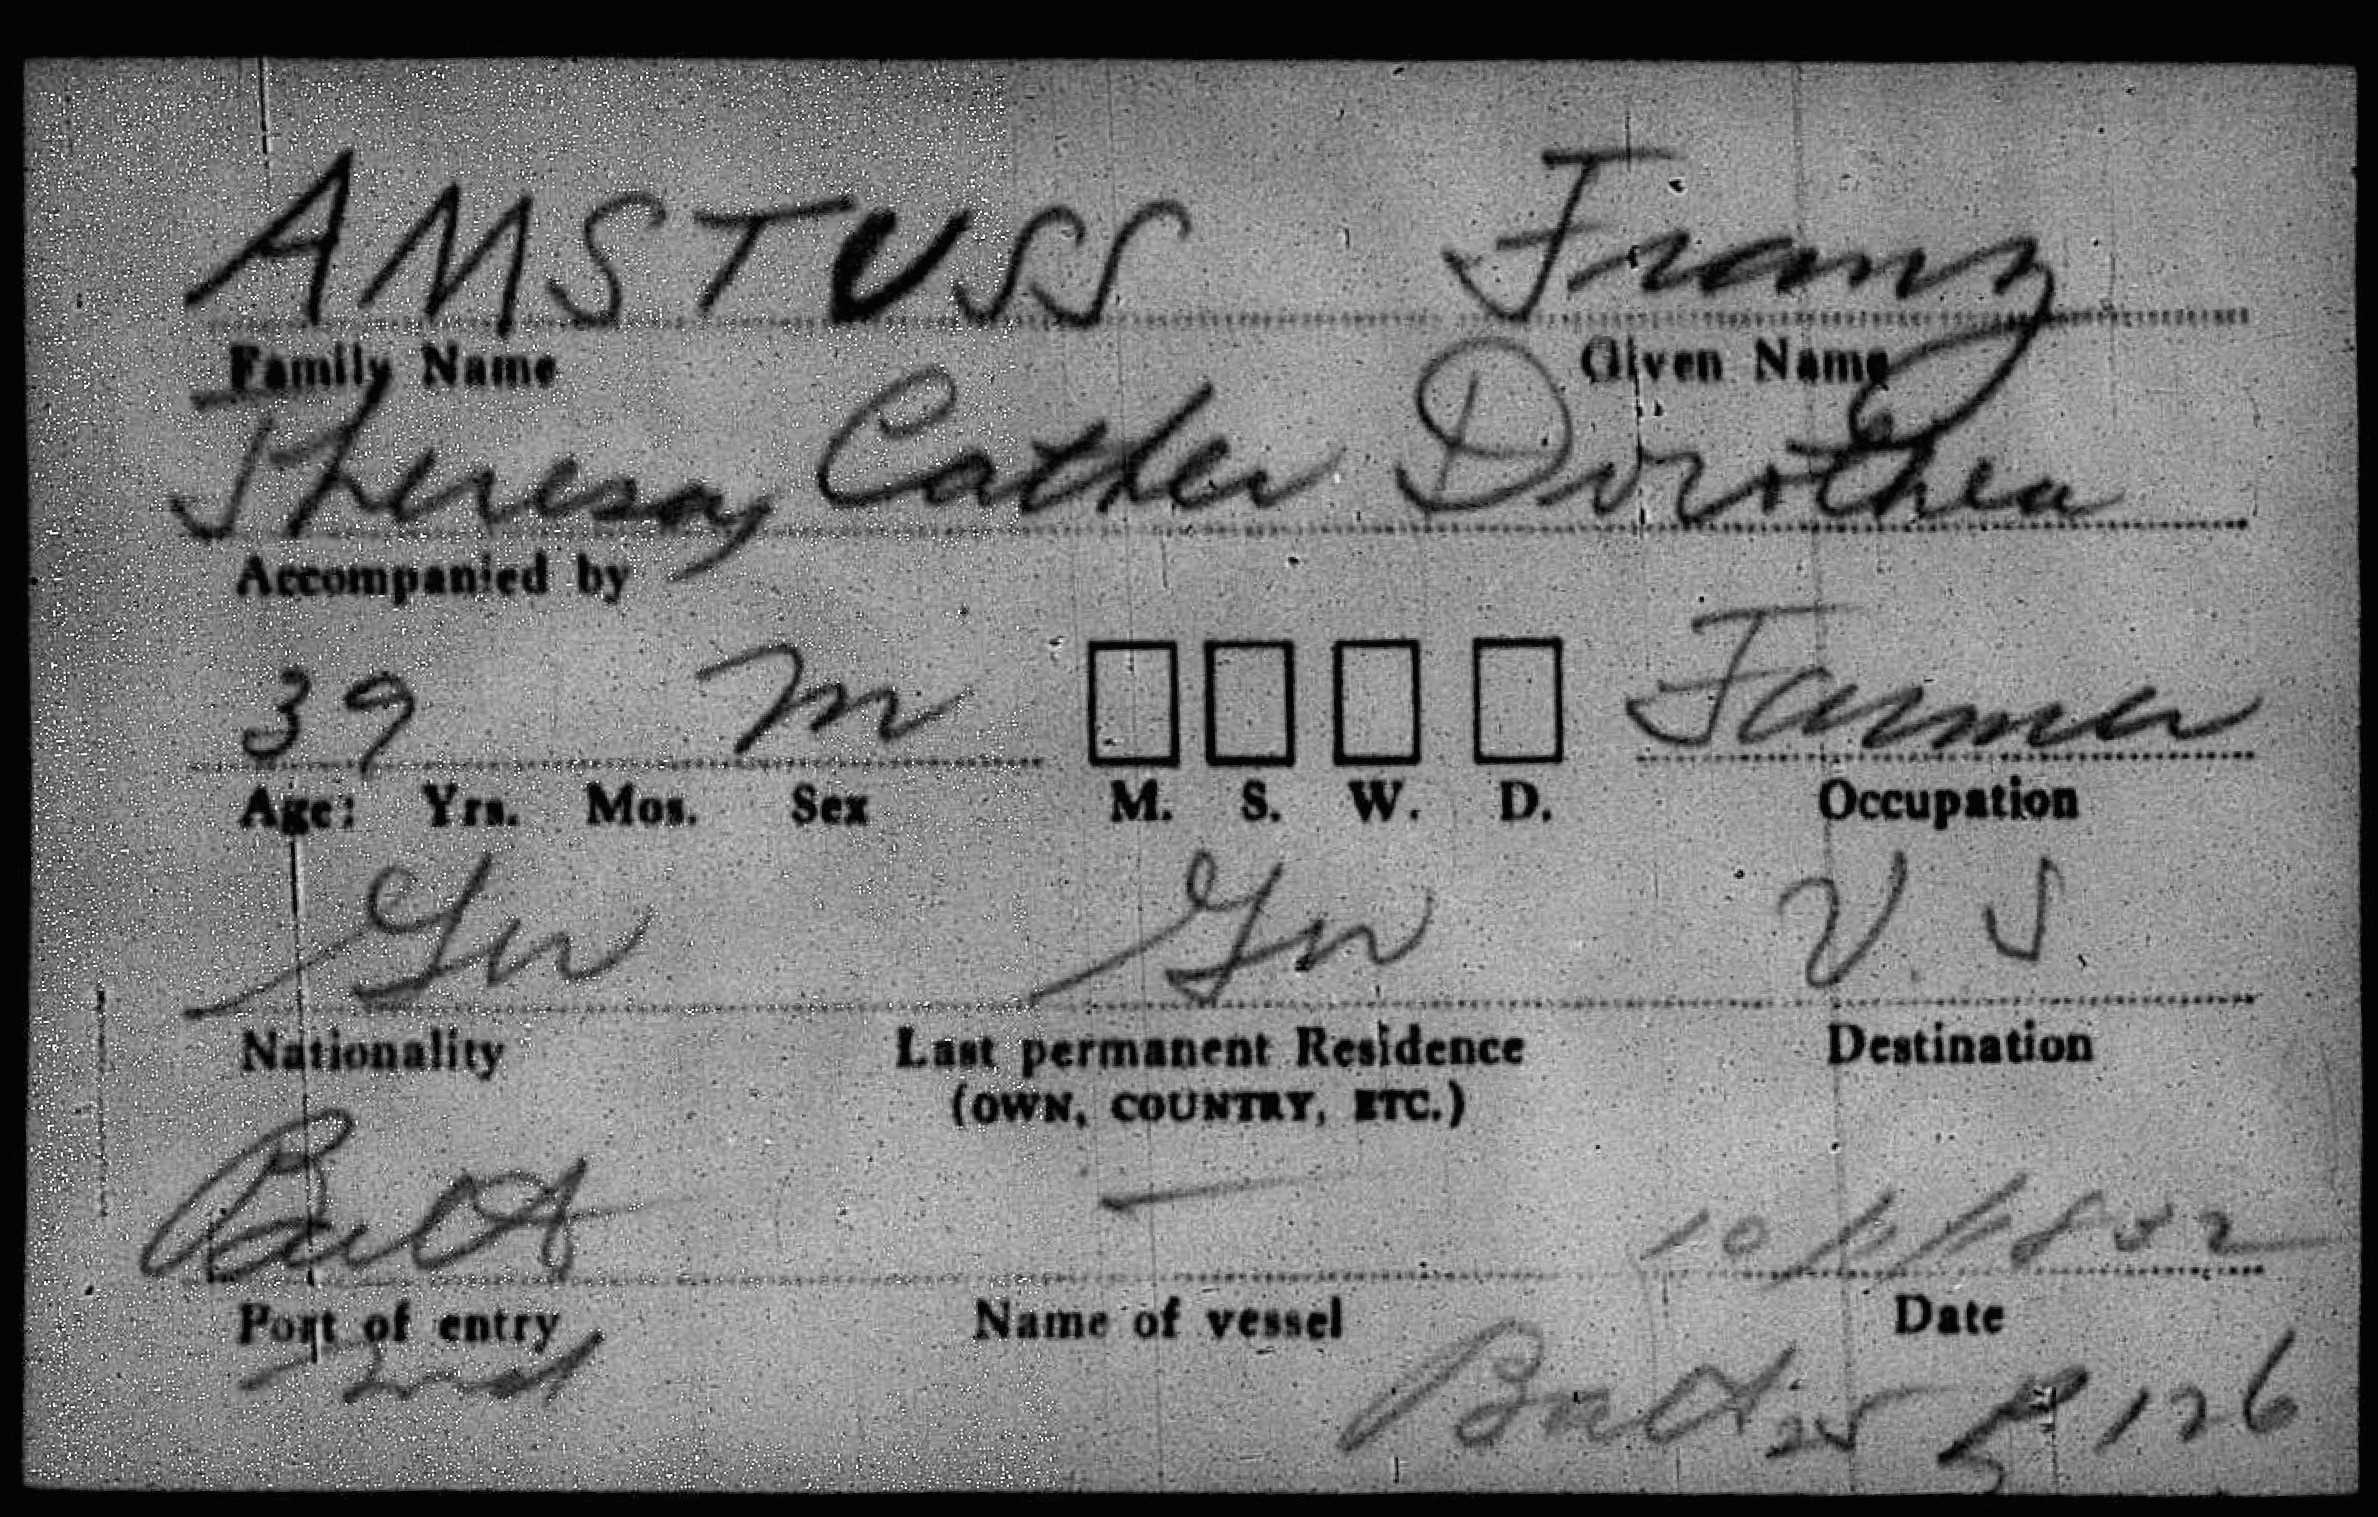 AMSTUSS Franz
Family Name Given Name
Theresa, Cather Dorothea
Accompanied by
39 m Farmer
Age: Yrs. Mos. Sex M. S. W. D. Occupation
Ger Ger U.S.
Nationality Last permanent Residence Destination
(OWN, COUNTRY, ETC.)
Balto — 10/1/1832
Port of entry Name of vessel Date
md Balto 25 P 126